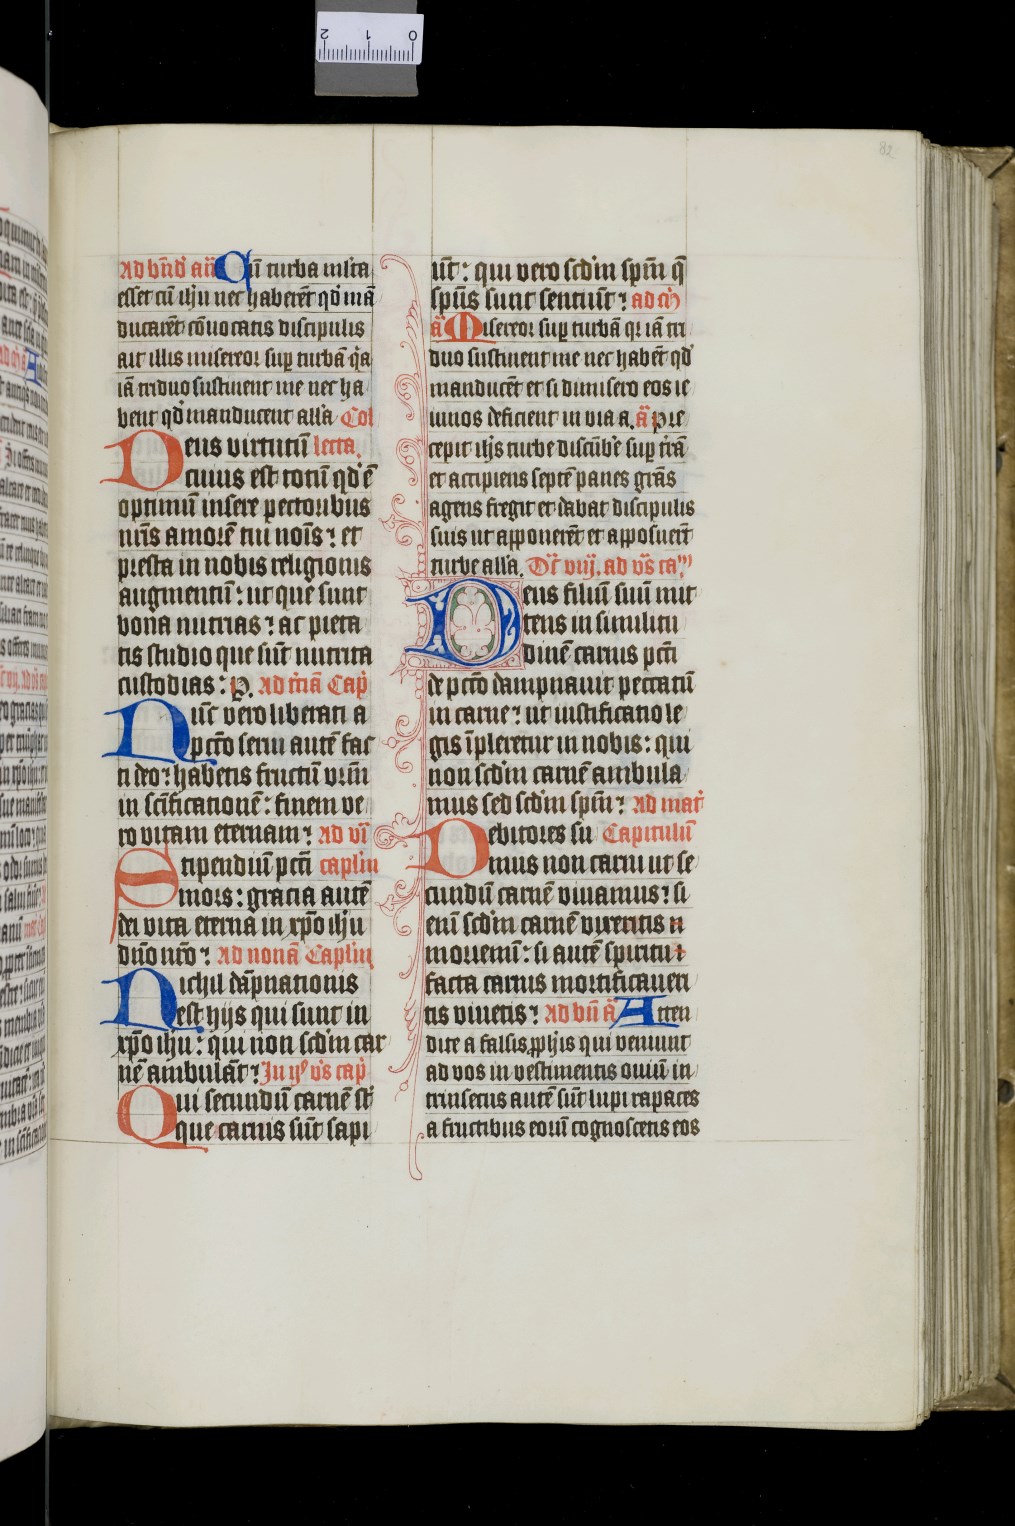 82
Ad bn̄d̕ añ Cū turba ml̕ta
esset cū ih̄u nec haberēt qd̕ mā
ducarēt cōuocatis discipulis
ait illis misereor sup̱ turbā q̕a
iā triduo sustinent me nec ha
bent qd̕ manducent all̕a Col
Deus virtutū lecta
cuius est totū qd̕ ē
optimū insere pectoribus
nr̄is amorē tui noīs ⁊ et
presta in nobis religionis
augmentū : ut que sunt
bona nutrias ⁊ ac pieta
tis studio que sūt nutrita
custodias : p̱. Ad t̕ciā Cap̄
Nūc vero liberati a
pctō serui autē fac
ti deo ⁊ habetis fructū vr̄m
in scīficationē : finem ve
ro vitam eternam ⁊ Ad vī
Stipendiū pctī capl̕m
mors : gracia autē
dei vita eterna in xp̄o ih̄u
dn̄o nr̄o ⁊ Ad nonā Capl̕m
Nichil dāpnationis
est hijs qui sunt in
xp̄o ih̄u : qui non scd̕m car
nē ambulāt ⁊ In ijͣ vs̄ cap̄
Qui secundū carnē st̄
que carnis sūt sapi
ūt : qui vero scd̕m sp̄m q̄
sp̄us sunt sentiūt ⁊ ad m̄
ā Misereor sup̱ turbā q̕ iā tri
duo sustinent me nec habēt qd̕
manducēt et si dimisero eos ie
iunos deficient in via a. ā Pre
cepit ih̄s turbe discūbe̕ sup̱ t̕rā
et accipiens septē panes grās
agens fregit et dabat discipulis
suis ut apponerēt et apposuerūt
turbe all̕a. Dc̄ viij. ad vs̄ caᵐ
Deus filiū suū mit
tens in similitu
dinē carnis pctī
de pctō dampnauit peccatū
in carne ⁊ ut iustificatio le
gis īpleretur in nobis : qui
non scd̕m carnē ambula
mus sed scd̕m sp̄m ⁊ Ad mat̕
Debitores su Capitulū
mus non carni ut se
cundū carnē viuamus ⁊ si
eni scd̕m carnē vixeritis
moriemī : si autē spiritu
facta carnis mortificaueri
tis viuetis ⁊ Ad bn̄ ā Atten
dite a falsis ꝓph̄is qui veniunt
ad vos in vestimentis ouiū in
trinsecus autē sūt lupi rapaces
a fructibus eorū cognoscetis eos